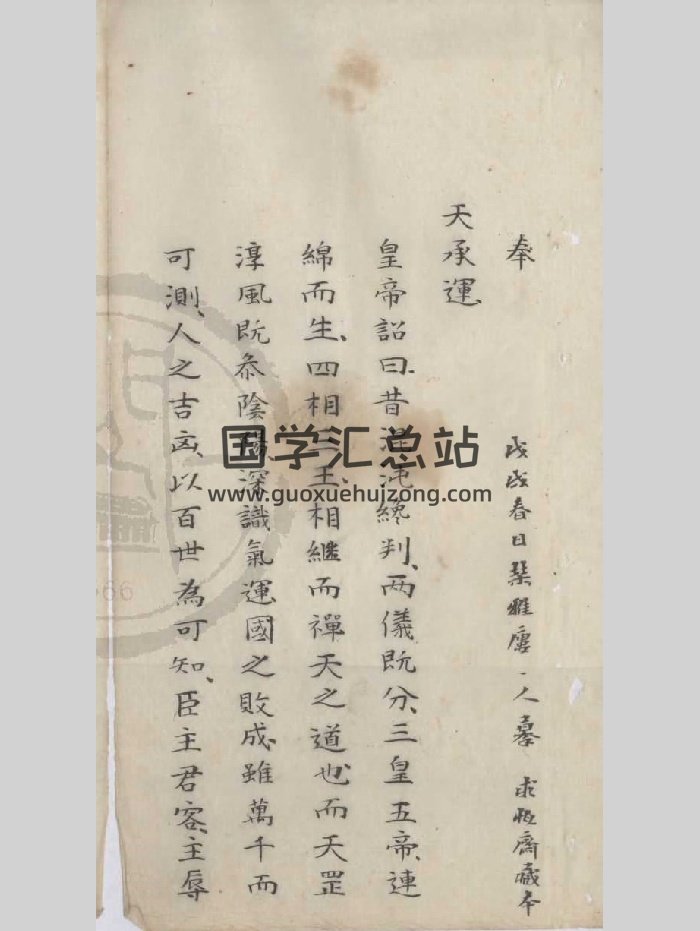 奉
戊戌春日 雅 人摹 求恆齋藏本
天承運
皇帝詔曰、昔混沌終判、两儀既分、三皇五帝、連
綿而生、四相三王、相繼而禪、天之道也、而天罡
淳風既忝陰陽、深識氣運、國之敗成、雖萬千而
可測、人之吉凶、以百世為可知、臣主君客、主辱
国学汇总站
www.guoxuehuizong.com